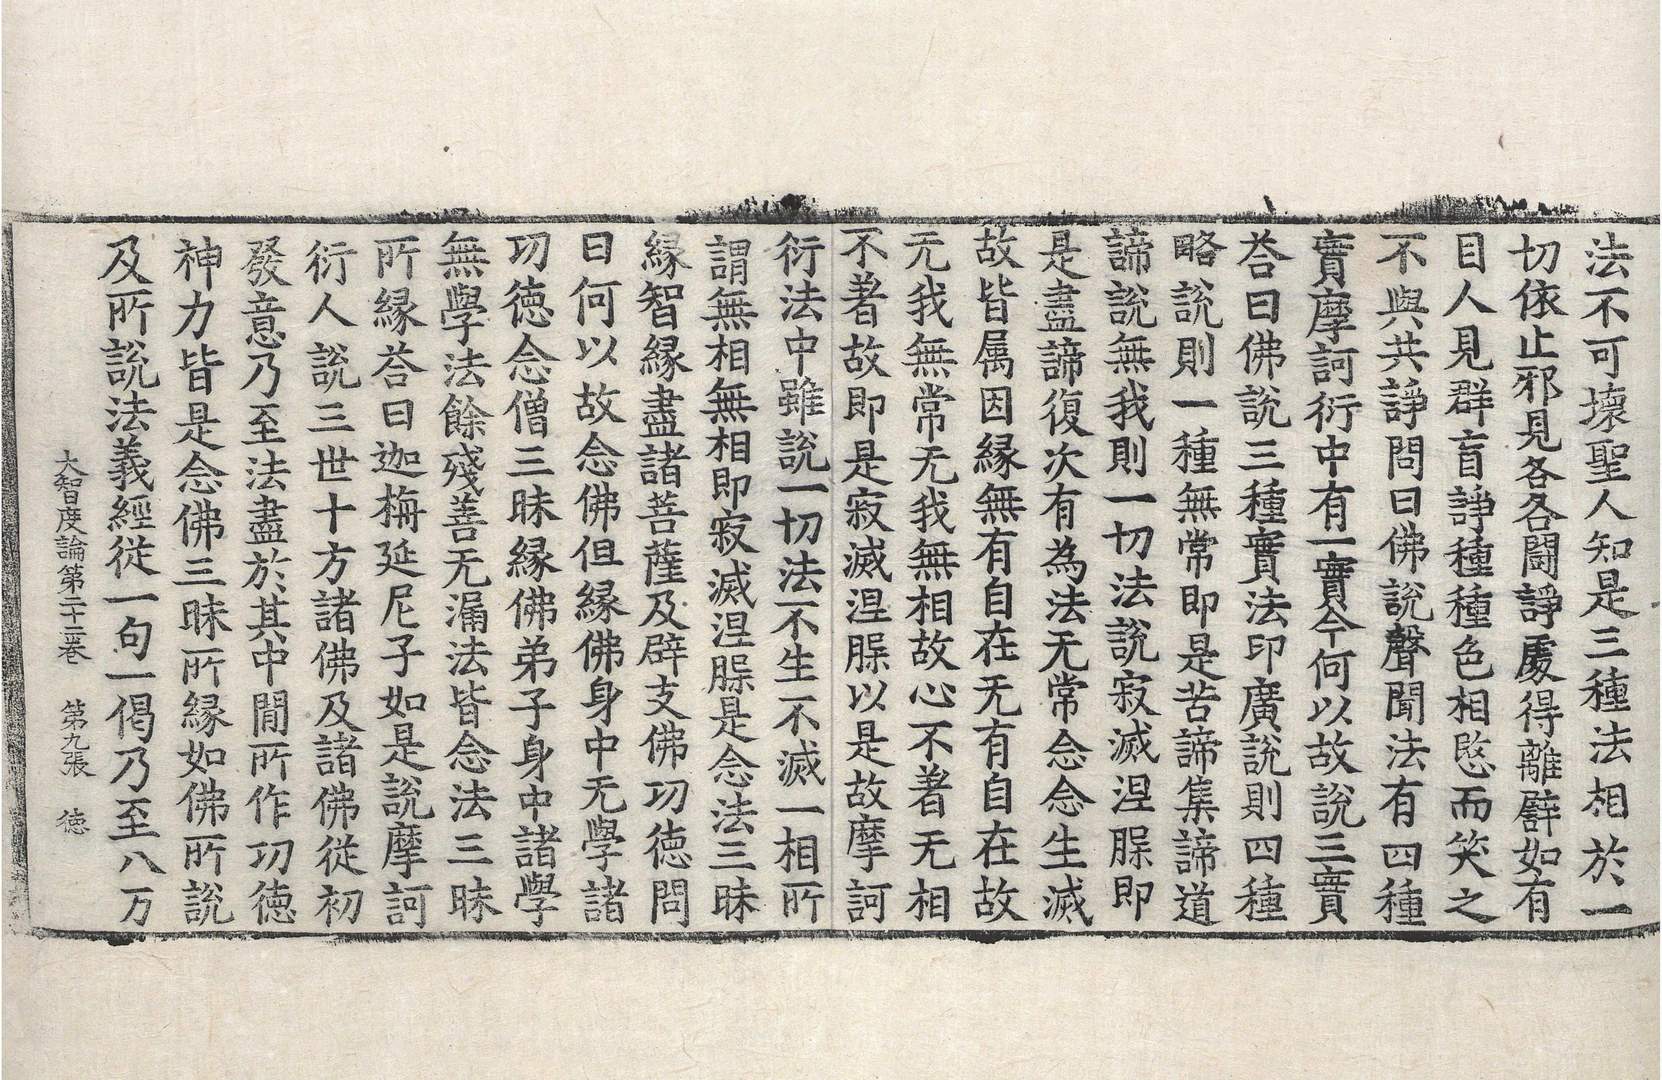 法不可壞聖人知是三種法相於一
切依止邪見各各鬪諍處得離譬如有
目人見群盲諍種種色相愍而笑之
不與共諍問曰佛說聲聞法有四種
實摩訶衍中有一實今何以故說三實
荅曰佛說三種實法印廣說則四種
略說則一種無常即是苦諦集諦道
諦說無我則一切法說寂滅涅槃即
是盡諦復次有為法无常念念生滅
故皆属因緣無有自在无有自在故
无我無常无我無相故心不著无相
不著故即是寂滅涅槃以是故摩訶
衍法中雖說一切法不生不滅一相所
謂無相無相即寂滅涅槃是念法三昧
緣智緣盡諸菩薩及辟支佛功德問
曰何以故念佛但緣佛身中无學諸
功德念僧三昧緣佛弟子身中諸學
無學法餘殘善无漏法皆念法三昧
所緣荅曰迦栴延尼子如是說摩訶
衍人說三世十方諸佛及諸佛從初
發意乃至法盡於其中間所作功德
神力皆是念佛三昧所緣如佛所說
及所說法義經從一句一偈乃至八万
大智度論第二十二卷 第九張 德